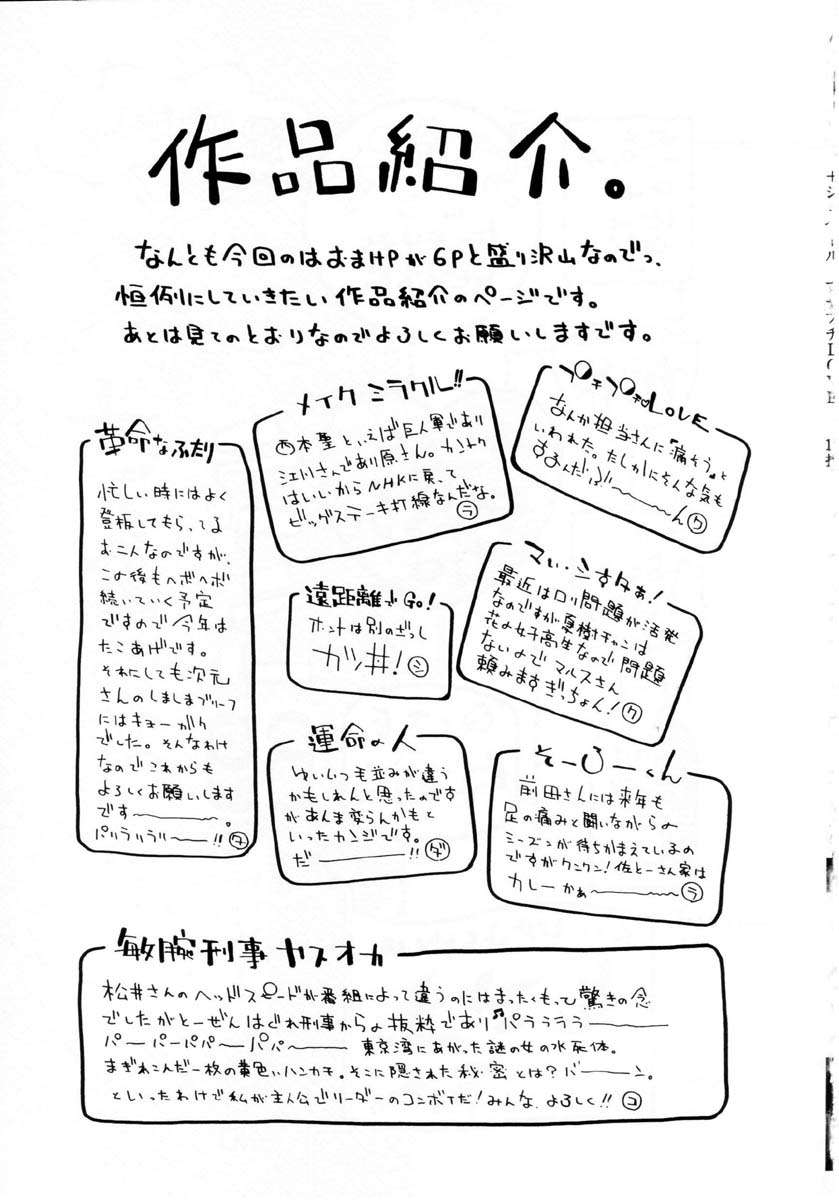 作品紹介。
なんとも今回のはおまけPが6Pと盛り沢山なのでっ、
恒例にしていきたい作品紹介のページです。
あとは見てのとおりなのでよろしくお願いしますです。
LOVE
なんか担当さんに『痛そう』と
いわれた。たしかにそんな気も
するんだぶ〜〜ん ク
メイクミラクル!!
西本聖といえば巨人軍であり
江川さんであり原さん。カントク
はいいからNHKに戻って
ビッグステーキ打線なんだな。
ラ
革命なふたり
忙しい時にはよく
登板してもらってる
おこんなのですが、
この後もヘボヘボ
続いていく予定
ですので今年は
たこあげです。
それにしても次元
さんのしましまブリーフ
にはキョーがく
でした。そんなわけ
なのでこれからも
よろしくお願いします
です〜〜。
パリラリラリ〜〜!! タ
遠距離でGO!
ホントは別のざっし
ガッ井! シ
まい・シすタぁ!
最近はロリ問題が活発
なのですが夏樹チャンは
花の女子高生なので問題
ないのでマルスさん
頼みますぎっちょん! ク
運命の人
ゆいいつ毛並みが違う
かもしれんと思ったのです
があんま変らんかもと
いったカンジです。
だ〜〜!! ダ
そーろーくん
前田さんには来年も
足の痛みと闘いながらの
シーズンが待ちかまえているの
ですがクンクン!佐とーさん家は
カレーかぁ〜〜 ラ
敏腕刑事ヤスオカ
松井さんのヘッドスピードが番組によって違うのにはまったくもって驚きの念
でしたがとーぜんはぐれ刑事からの抜粋であり♫パラララ〜〜
パーパーパパーパパ〜〜 東京湾にあがった謎の女の水死体。
まぎれこんだ一枚の黄色いハンカチ。そこに隠された秘密とは?バーーン。
といったわけで私が主人公でリーダーのコンボイだ!みんな、よろしく!! コ